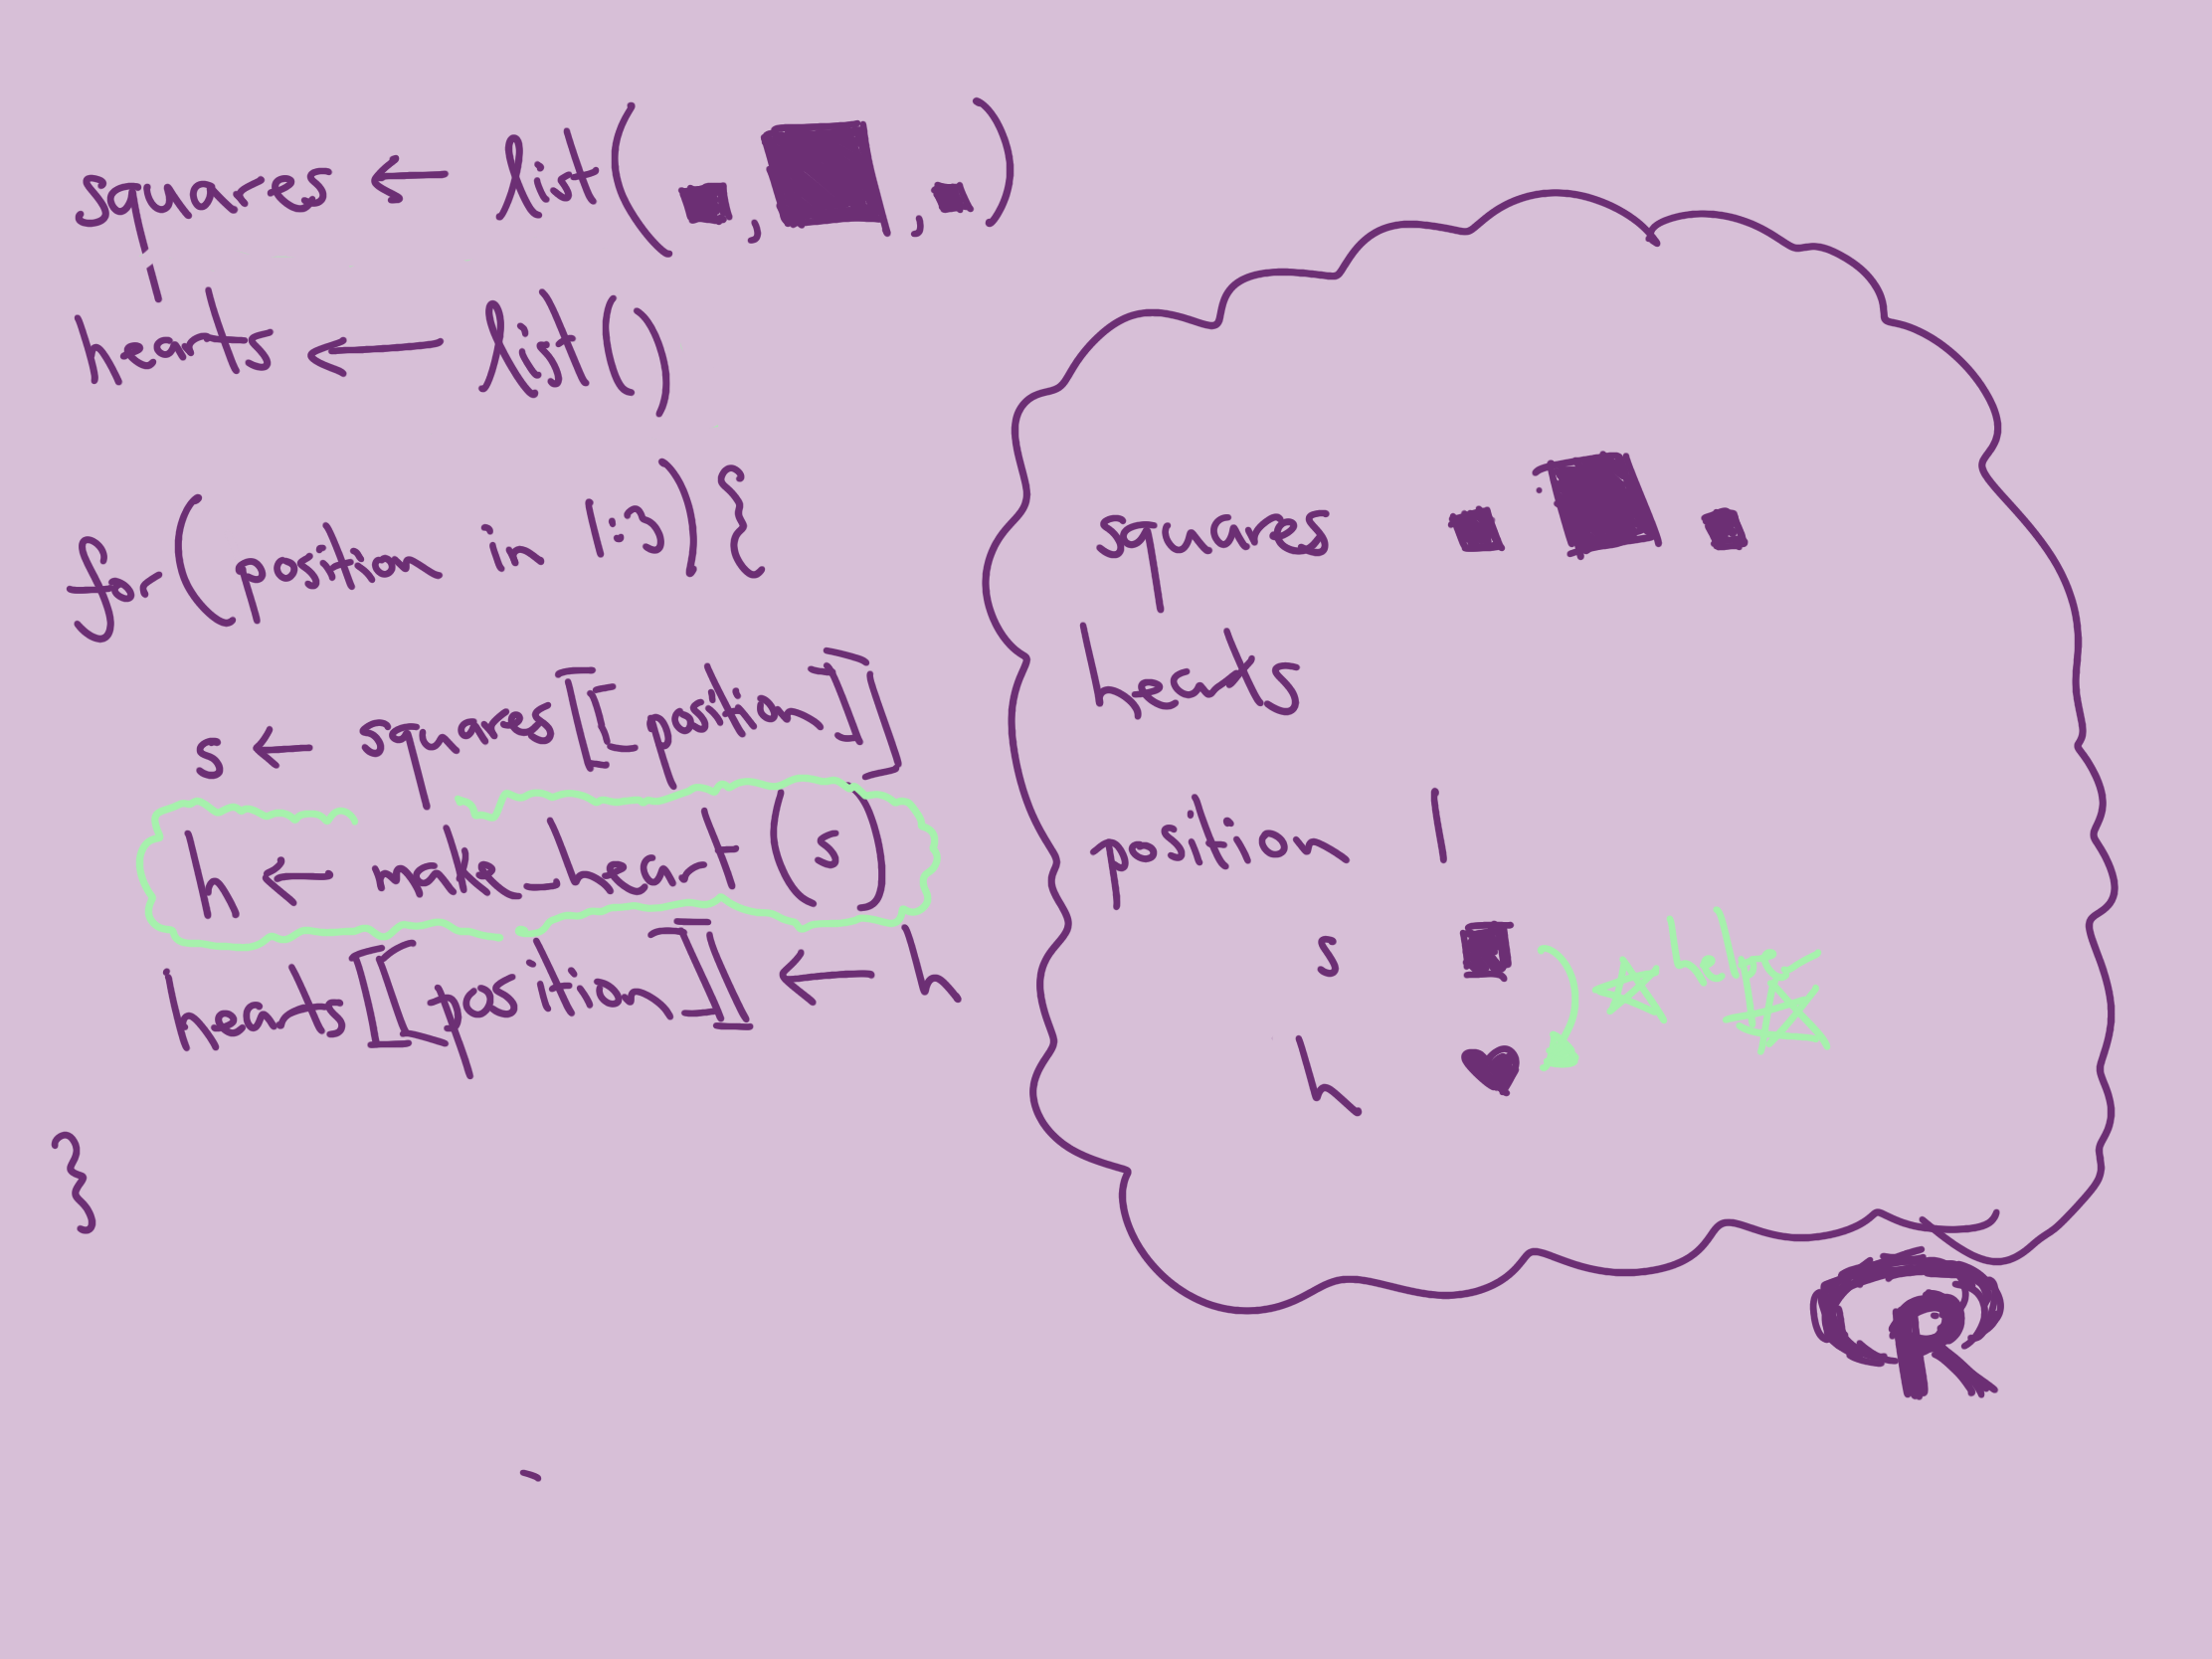 squares ← list( , , )
hearts ← list()
for(position in 1:3){
s ← squares[[position]]
h ← make_heart(s)
hearts[[position]] ← h
}
squares
hearts
position 1
s
h
R